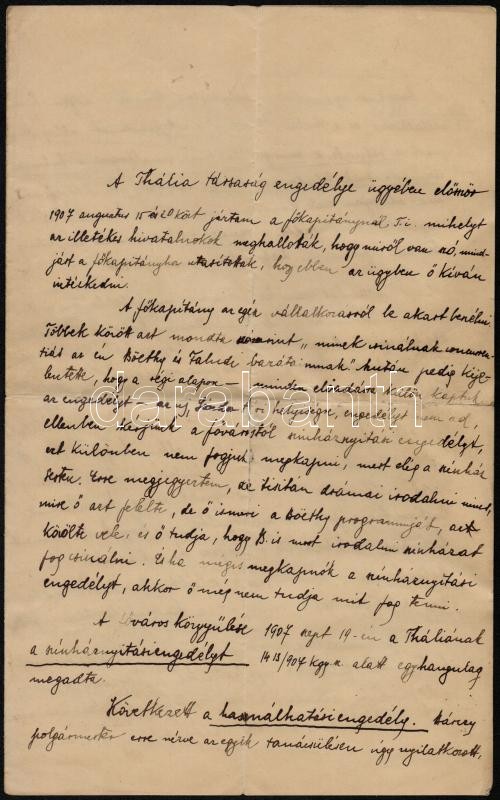 A Thália társaság engedélye ügyében először
1907 augusztus 15 és 20 közt jártam a főkapitánynál. T. i. mihelyt
az illetékes hivatalnokok meghallották, hogy miről van szó, mind-
járt a főkapitányhoz utasítottak, hogy ebben az ügyben ő kíván
intézkedni.
A főkapitány az egész vállalkozásról le akart beszélni
Többek közt azt mondta „minek csinálnak
az én Beöthy és Faludi barátaimnak" Azután pedig kije-
lentette, hogy a régi alapon – minden előadásra külön kaptuk
az engedélyt – az új, helyiségre, engedélyt nem ad,
ellenben kérjünk a fővárostól színháznyitási engedélyt,
ezt különben nem fogjuk megkapni, mert elég a színház
Pesten. Erre megjegyeztem, tisztán drámai irodalmi
mire ő azt felelte, de ő ismeri a Beöthy programmját, azt
közölte vele, és ő tudja, hogy B. is most irodalmi színházat
fog csinálni. És ha mégis megkapnók a színháznyitási
engedélyt, akkor ő még nem tudja mit fog tenni.
A főváros közgyűlése 1907 sept 19-én a Tháliának
a színháznyitási engedélyt 1413/907 kgy. sz. alatt egyhangulag
megadta.
Következett a használhatási engedély. Bárczy
polgármester erre nézve az egyik tanácsülésen úgy nyilatkozott,
darabanth